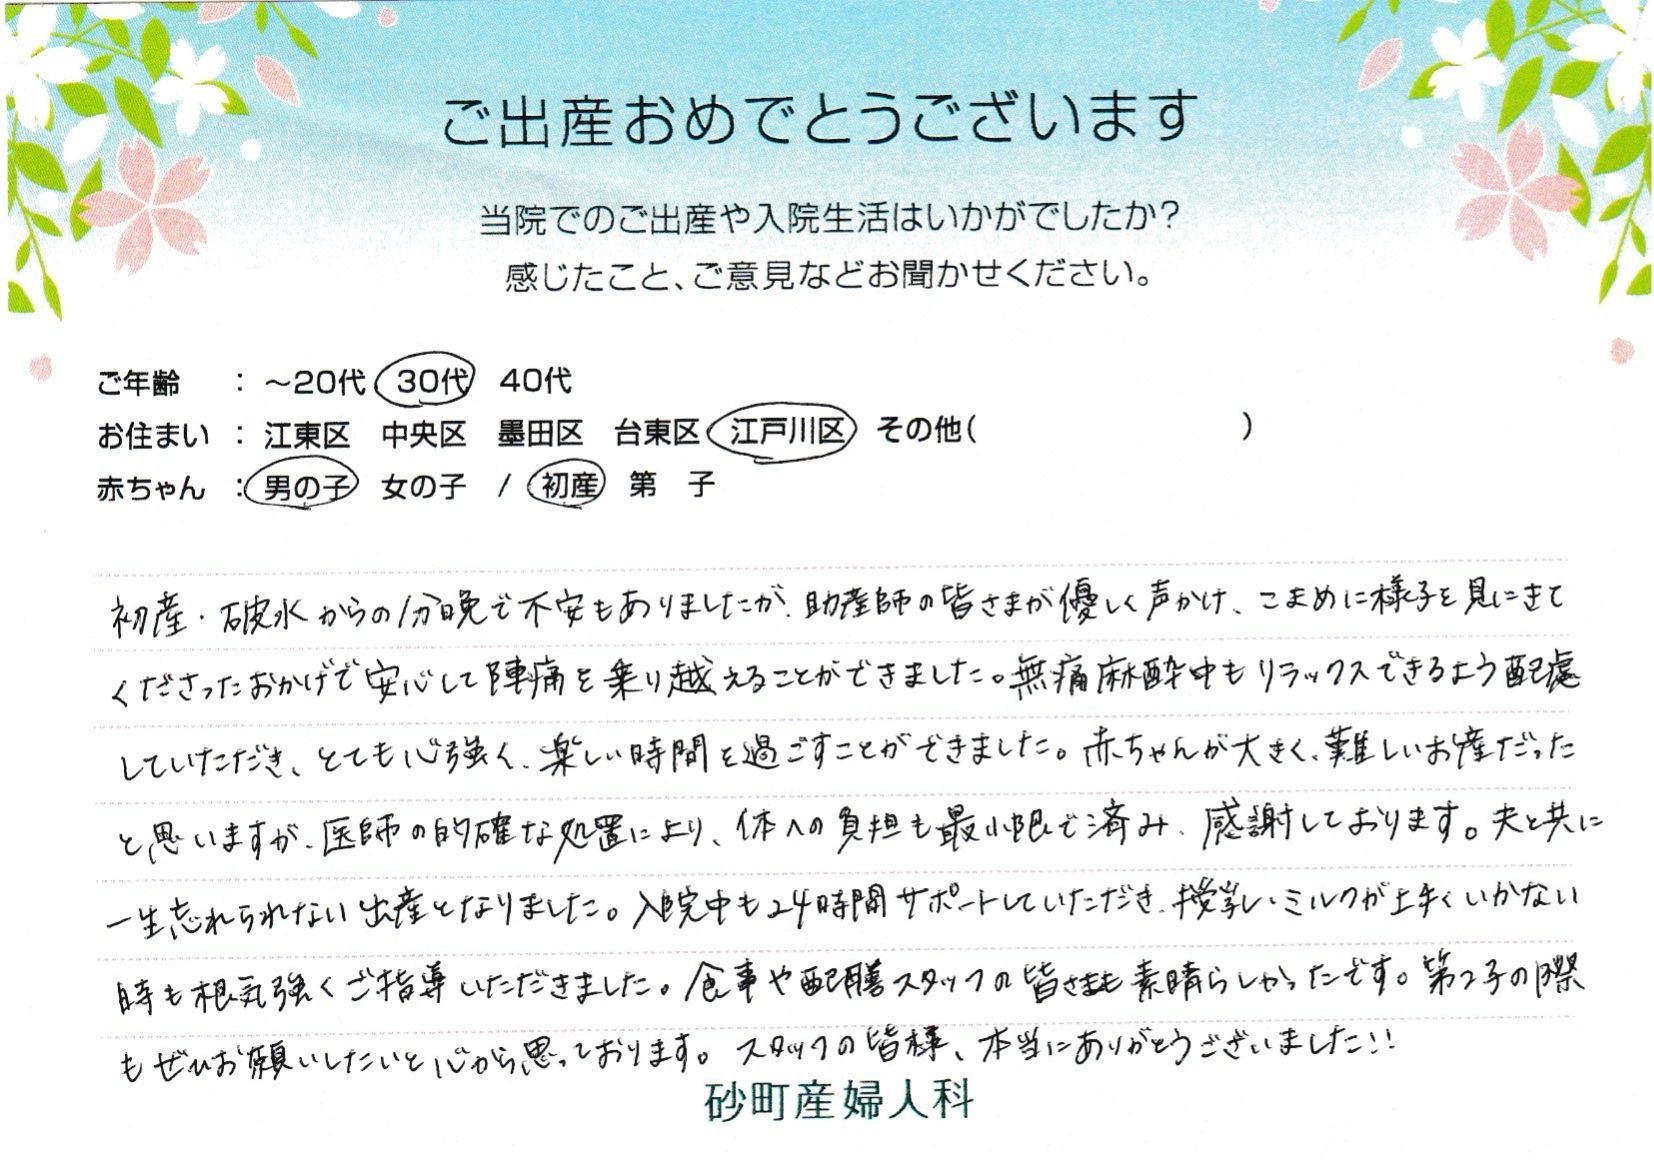 ご出産おめでとうございます
当院でのご出産や入院生活はいかがでしたか?
感じたこと、ご意見などお聞かせください。
ご年齢 : ～20代 30代 40代
お住まい : 江東区 中央区 墨田区 台東区 江戸川区 その他( )
赤ちゃん : 男の子 女の子 / 初産 第 子
初産・破水からの分娩で不安もありましたが、助産師の皆さまが優しく声かけ、こまめに様子を見にきて
くださったおかげで安心して陣痛を乗り越えることができました。無痛麻酔中もリラックスできるよう配慮
していただき、とても心強く、楽しい時間を過ごすことができました。赤ちゃんが大きく、難しいお産だった
と思いますが、医師の的確な処置により、体への負担も最小限で済み、感謝しております。夫と共に
一生忘れられない出産となりました。入院中も24時間サポートしていただき、授乳・ミルクが上手くいかない
時も根気強くご指導いただきました。食事や配膳スタッフの皆さまも素晴らしかったです。第2子の際
もぜひお願いしたいと心から思っております。スタッフの皆様、本当にありがとうございました!!
砂町産婦人科